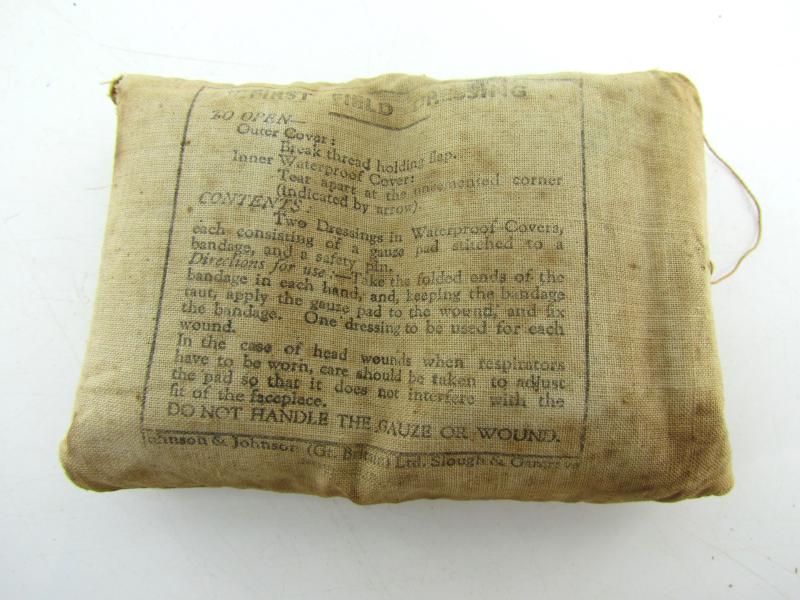 FIRST FIELD DRESSING
TO OPEN—
Outer Cover:
Break thread holding flap.
Inner Waterproof Cover:
Tear apart at the uncemented corner
(indicated by arrow).
CONTENTS:
Two Dressings in Waterproof Covers,
each consisting of a gauze pad stitched to a
bandage, and a safety pin.
Directions for use:—Take the folded ends of the
bandage in each hand, and, keeping the bandage
taut, apply the gauze pad to the wound, and fix
the bandage. One dressing to be used for each
wound.
In the case of head wounds when respirators
have to be worn, care should be taken to adjust
the pad so that it does not interfere with the
fit of the facepiece.
DO NOT HANDLE THE GAUZE OR WOUND.
Johnson & Johnson (Gt. Britain) Ltd. Slough &